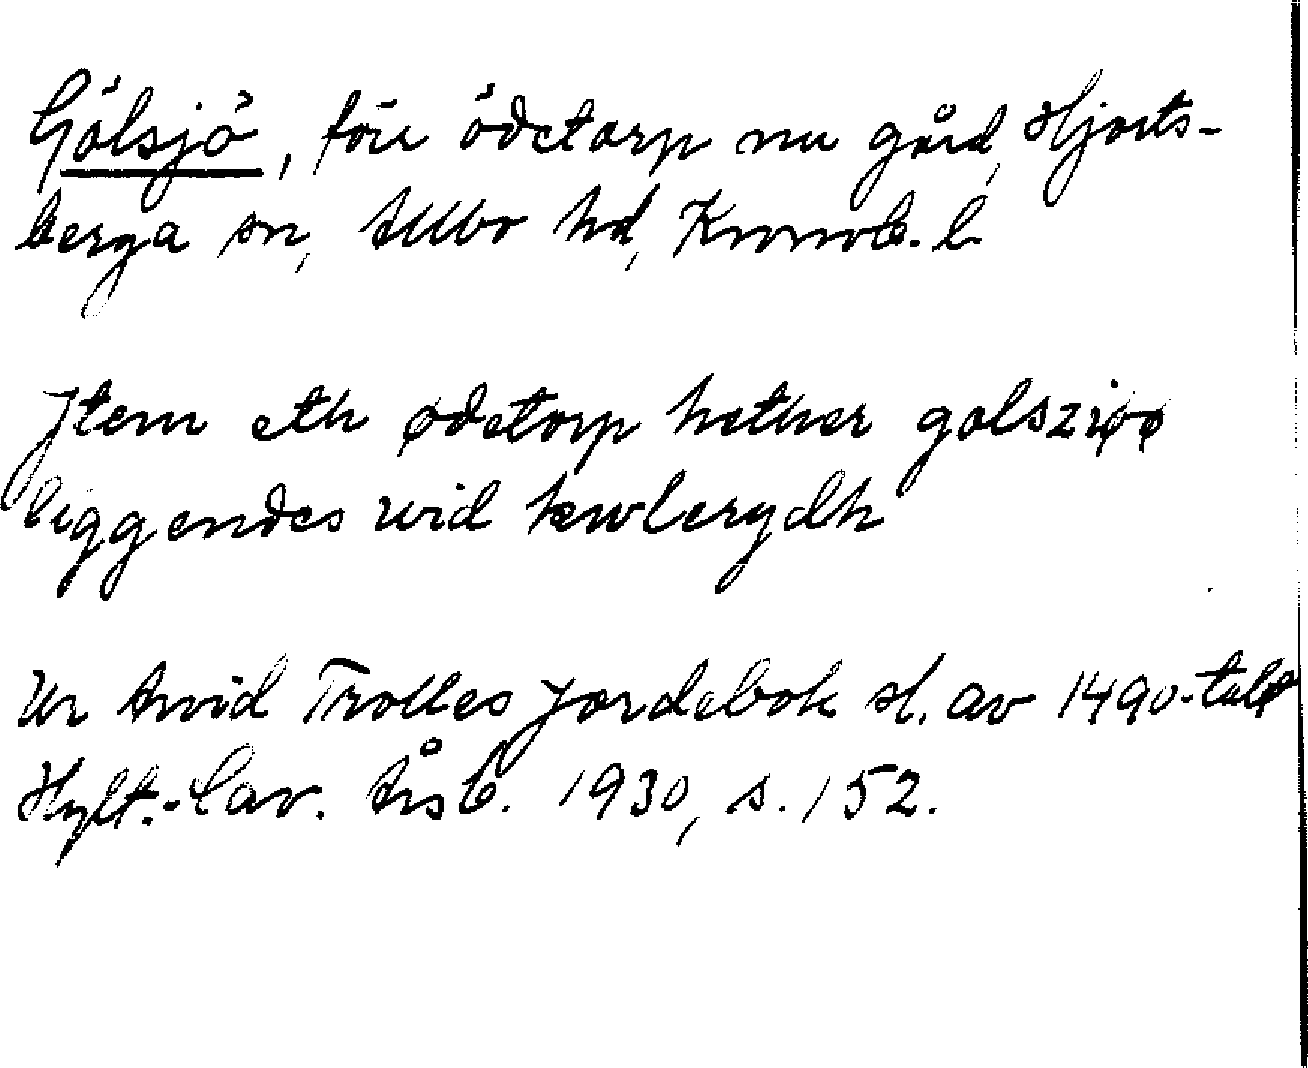 Gölsjö, förr ödetorp nu gård, Hjorts-
berga sn, Allbo hd, Kronob. l.
Jtem eth ødetorp hether golsziøø
liggendes wid hæwlerydh
Ur Arvid Trolles Jordebok sl. av 1490-talet
Hylt.-Cav. Årsb. 1930, s. 152.